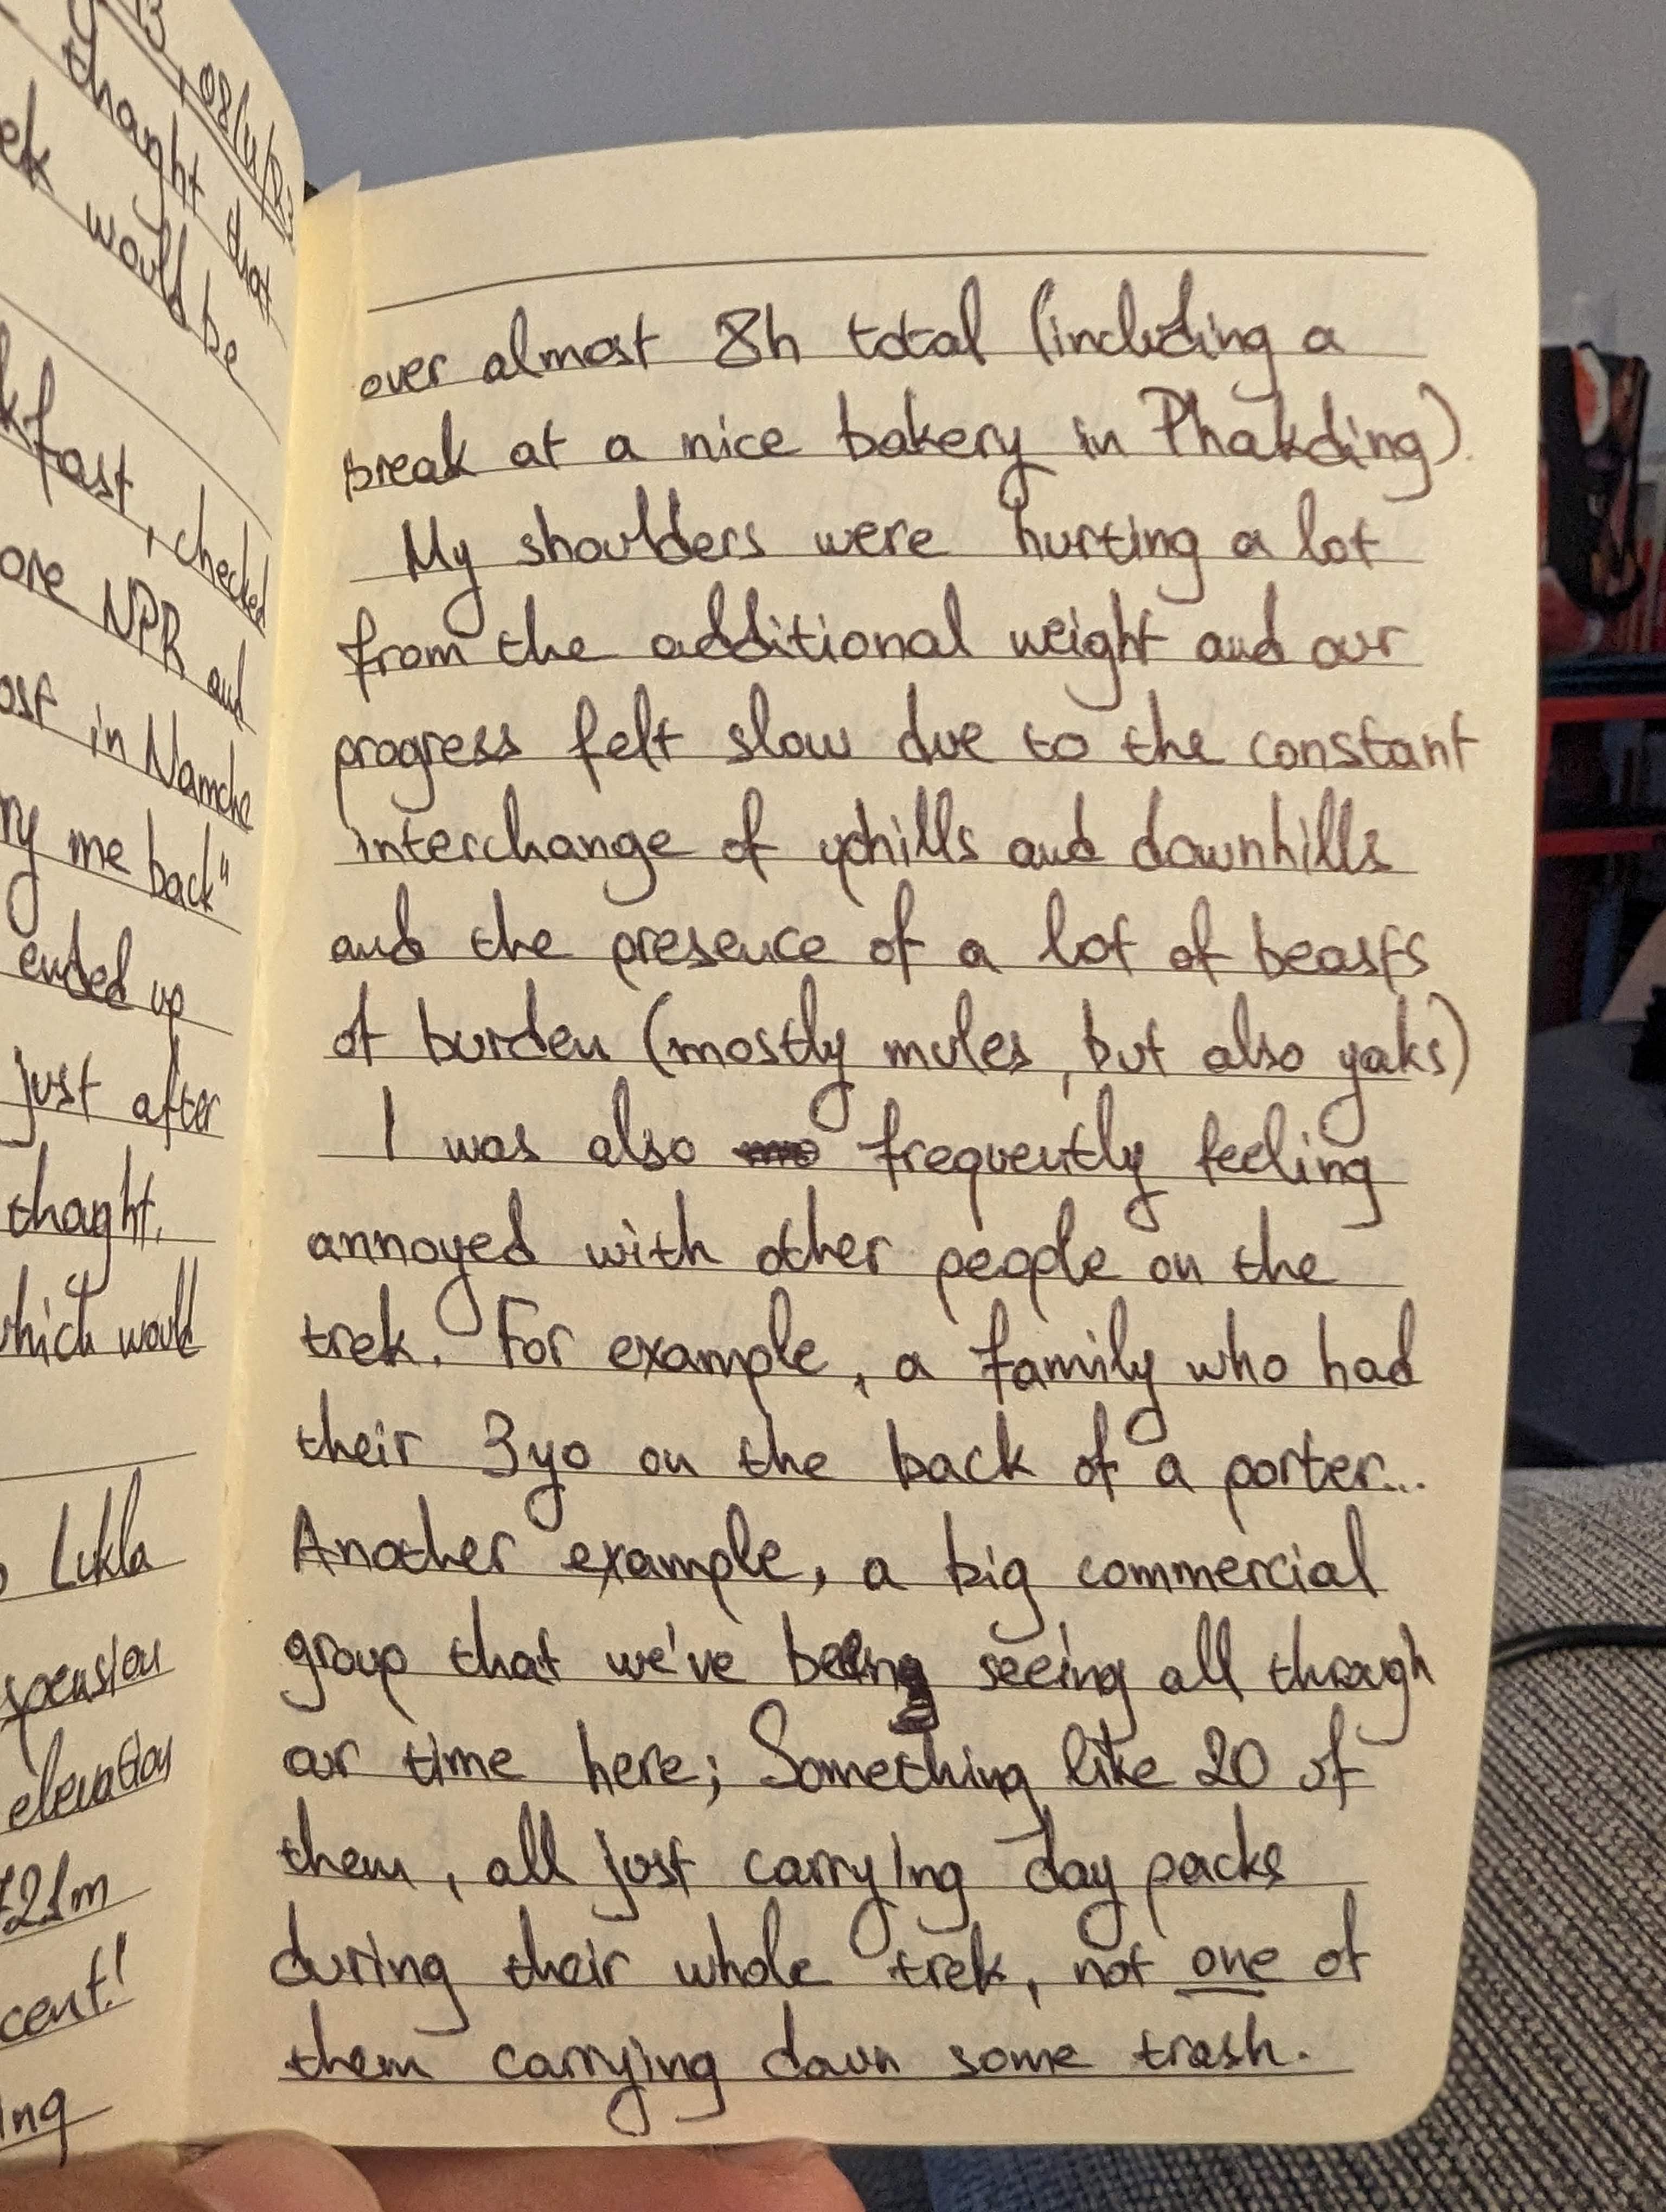 08/11/23
thought that
would be
fast, checked
ore NPR and
ost in Namche
ry me back"
ended up
just after
thought.
which would
Lukla
spension
elevation
721m
cent!
ing
over almost 8h total (including a
break at a nice bakery in Phakding).
My shoulders were hurting a lot
from the additional weight and our
progress felt slow due to the constant
interchange of uphills and downhills
and the presence of a lot of beasts
of burden (mostly mules, but also yaks)
I was also frequently feeling
annoyed with other people on the
trek. For example, a family who had
their 3yo on the back of a porter...
Another example, a big commercial
group that we've been seeing all through
our time here; Something like 20 of
them, all just carrying day packs
during their whole trek, not one of
them carrying down some trash.